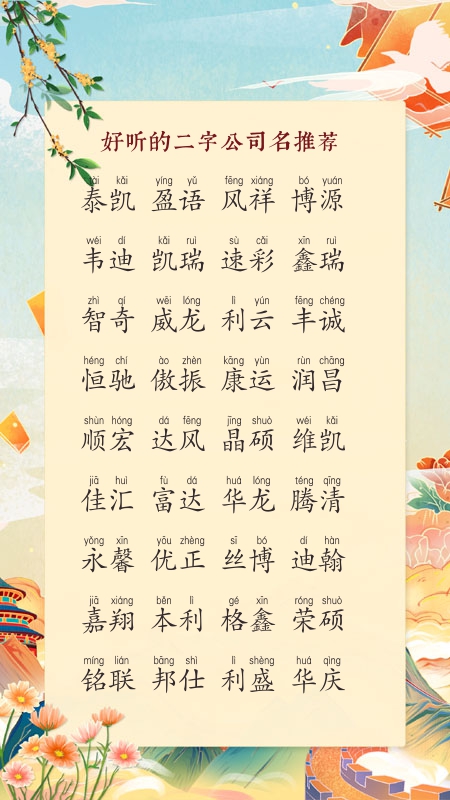 好听的二字公司名推荐
tài kǎi yíng yǔ fēng xiáng bó yuán
泰凯 盈语 风祥 博源
wéi dí kǎi ruì sù cǎi xīn ruì
韦迪 凯瑞 速彩 鑫瑞
zhì qí wēi lóng lì yún fēng chéng
智奇 威龙 利云 丰诚
héng chí ào zhèn kāng yùn rùn chāng
恒驰 傲振 康运 润昌
shùn hóng dá fēng jīng shuò wéi kǎi
顺宏 达风 晶硕 维凯
jiā huì fù dá huá lóng téng qīng
佳汇 富达 华龙 腾清
yǒng xīn yōu zhèng sī bó dí hàn
永馨 优正 丝博 迪翰
jiā xiáng běn lì gé xīn róng shuò
嘉翔 本利 格鑫 荣硕
míng lián bāng shì lì shèng huá qìng
铭联 邦仕 利盛 华庆